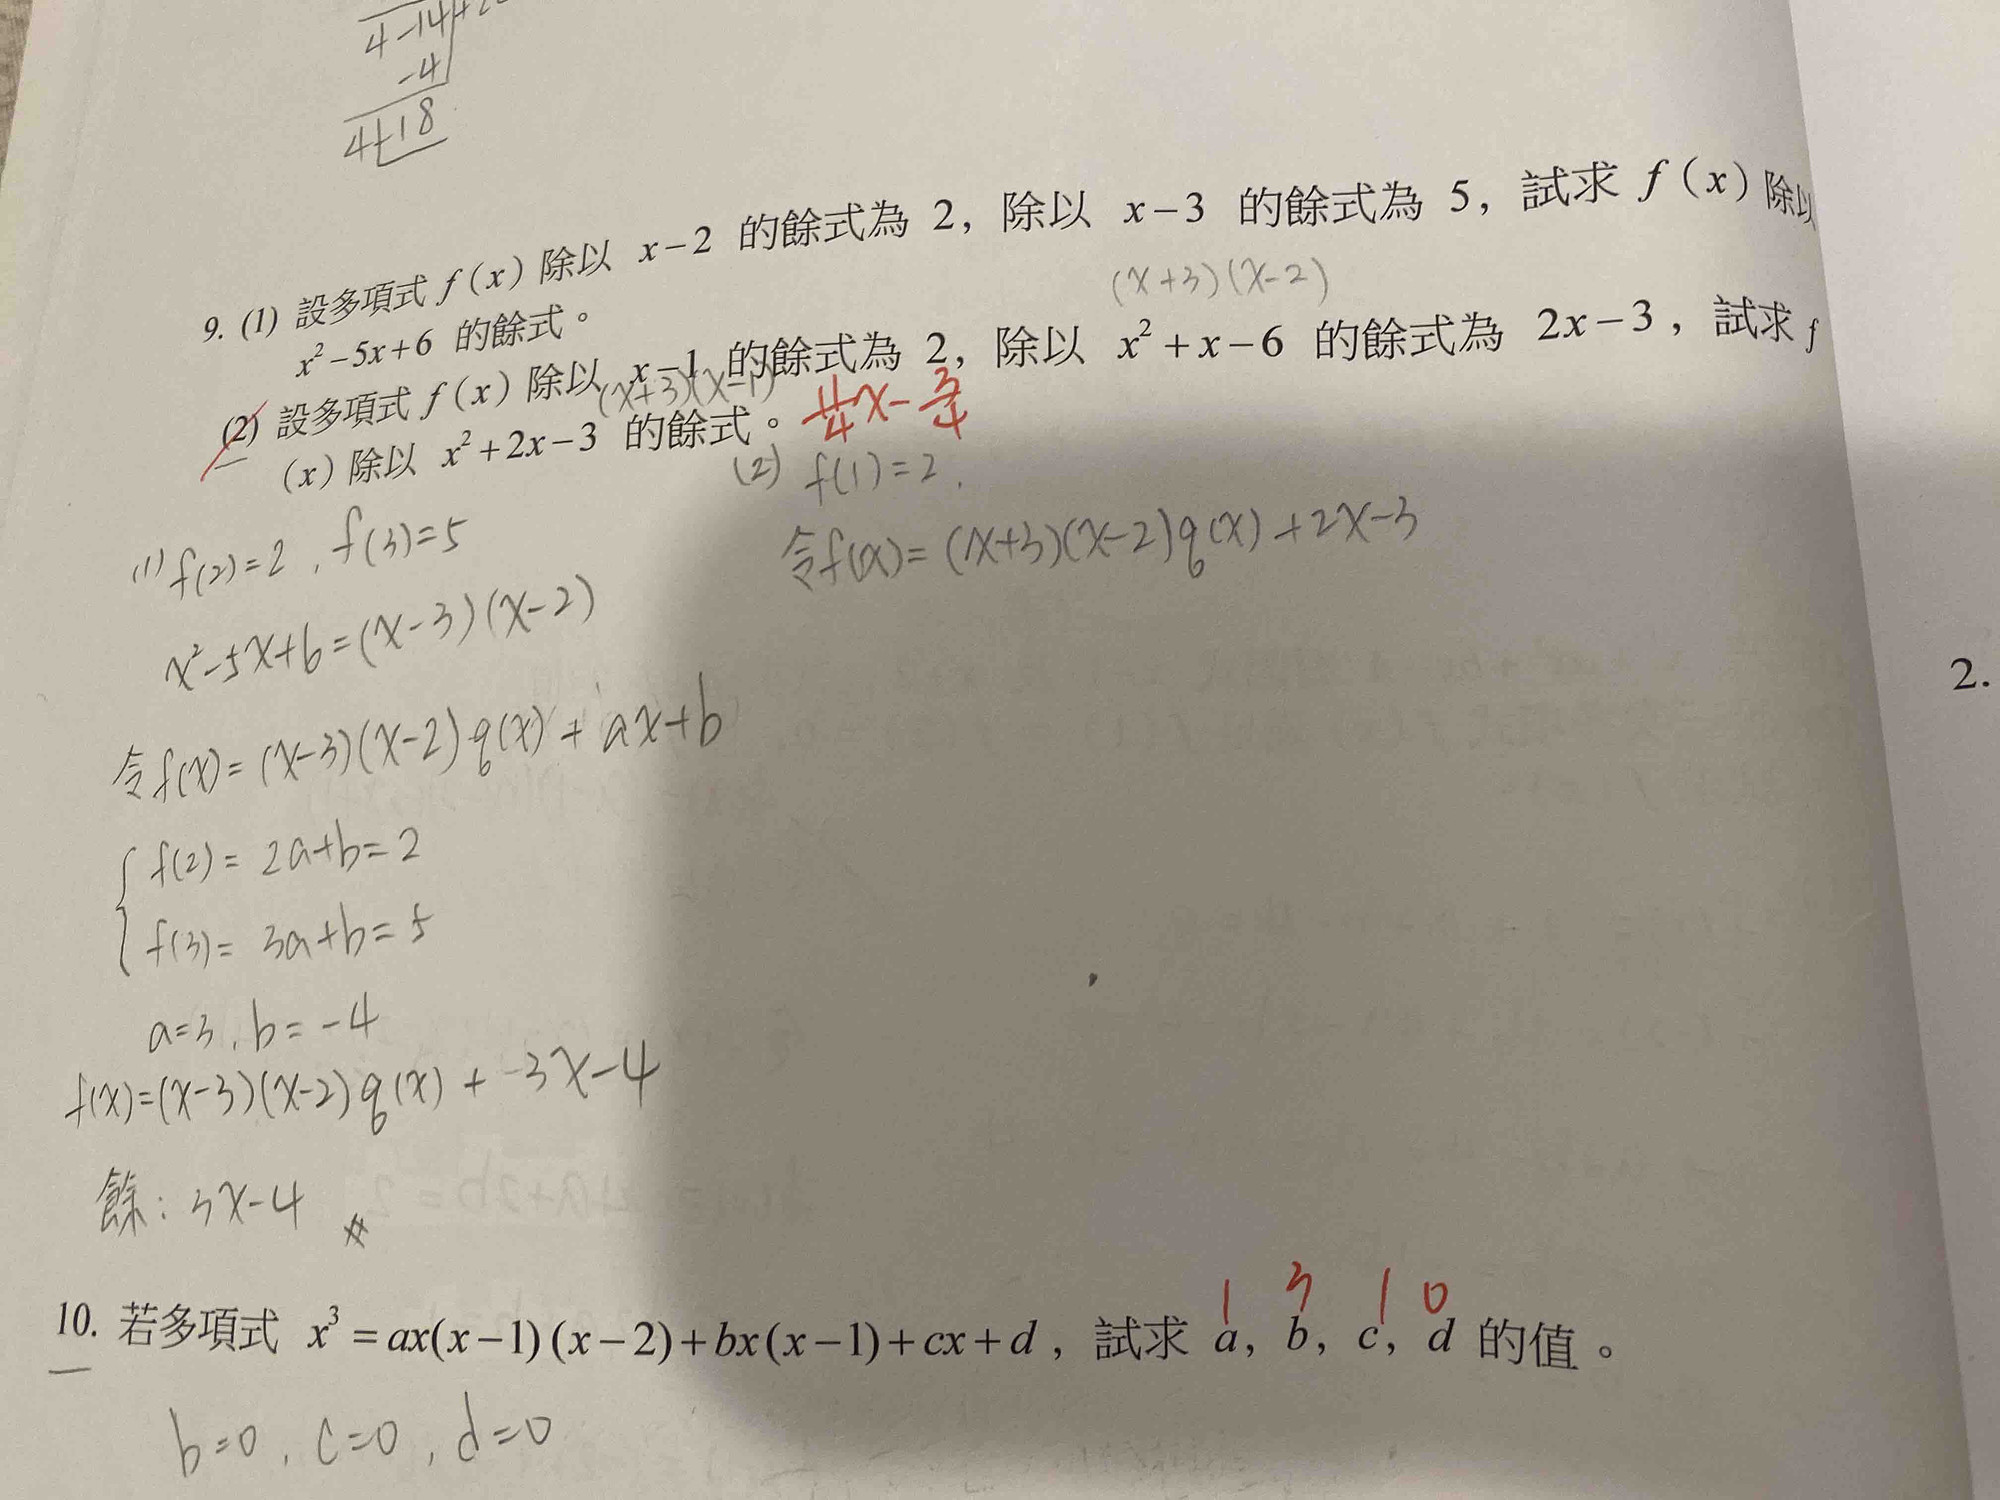 4-14+2
-4
4+18
9. (1) 設多項式 f(x) 除以 x-2 的餘式為 2, 除以 x-3 的餘式為 5, 試求 f(x) 除以
x²-5x+6 的餘式。
(x+3)(x-2)
(2) 設多項式 f(x) 除以 x-1 的餘式為 2, 除以 x²+x-6 的餘式為 2x-3, 試求 f
(x+3)(x-1)
(x) 除以 x²+2x-3 的餘式。 11/4x-3/4
(2) f(1)=2.
令f(x)=(x+3)(x-2)q(x)+2x-3
(1) f(2)=2, f(3)=5
x²-5x+6=(x-3)(x-2)
令f(x)=(x-3)(x-2)q(x)+ax+b
f(2)=2a+b=2
f(3)=3a+b=5
a=3, b=-4
f(x)=(x-3)(x-2)q(x)+3x-4
餘:3x-4 #
2.
1 3 1 0
10. 若多項式 x³=ax(x-1)(x-2)+bx(x-1)+cx+d, 試求 a, b, c, d 的值。
b=0, c=0, d=0